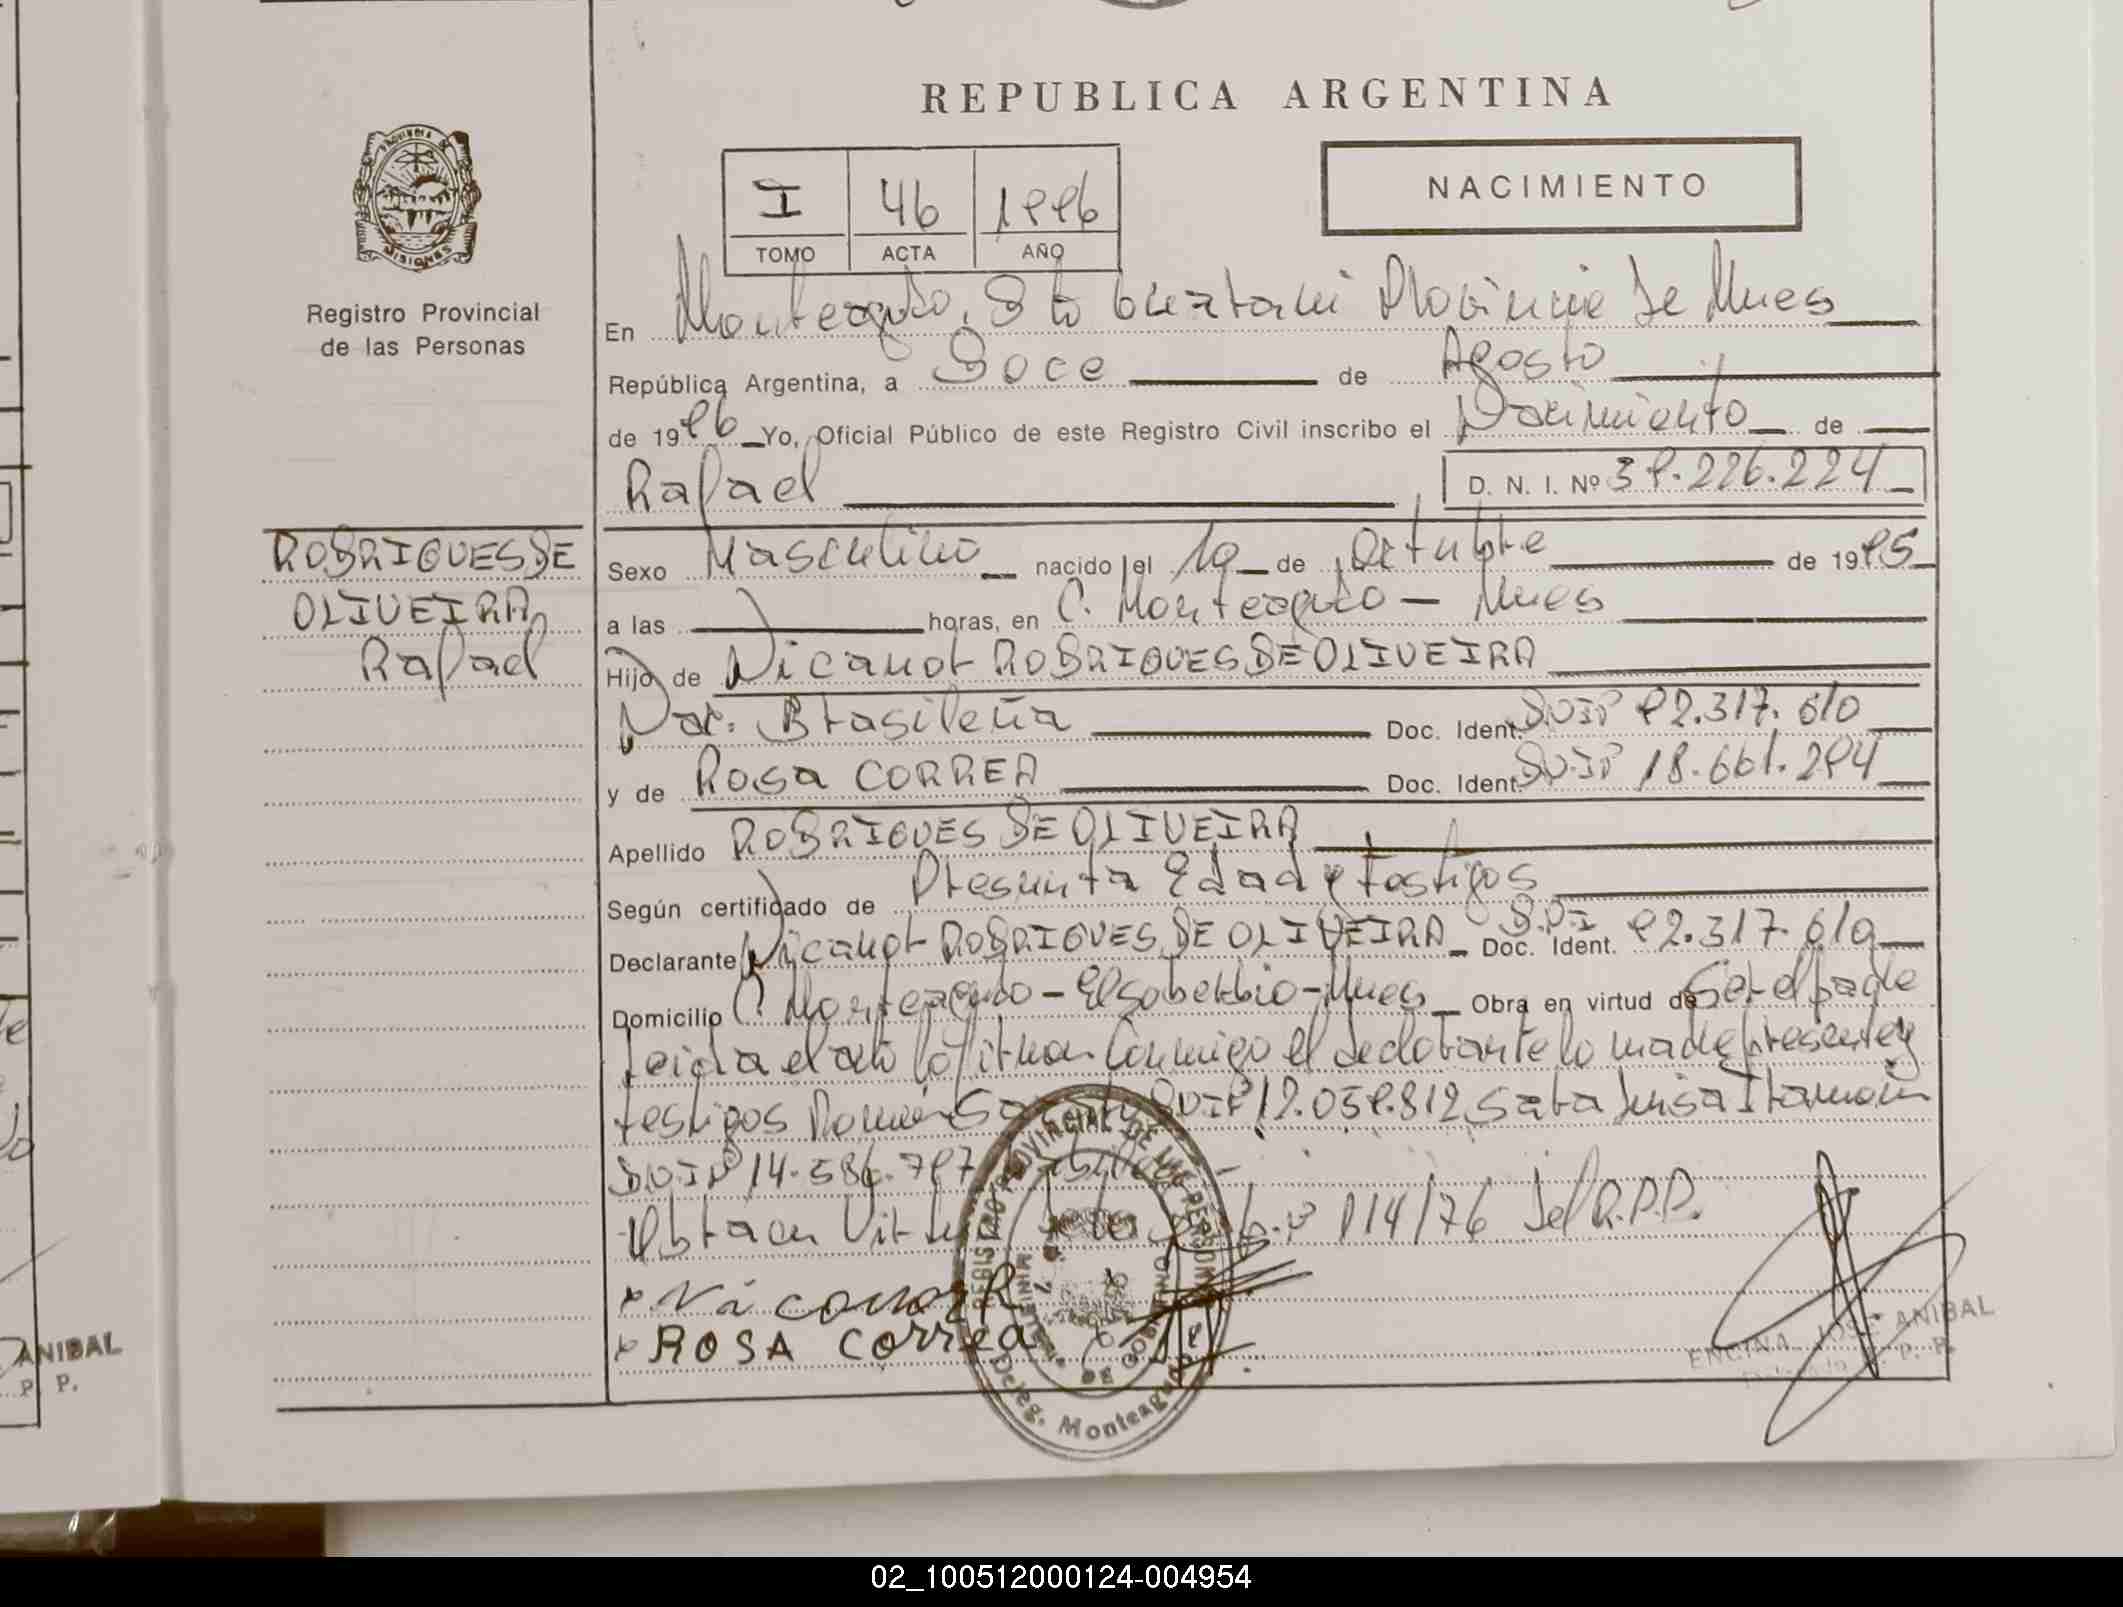 REPUBLICA ARGENTINA
NACIMIENTO
I 46 1996
TOMO ACTA AÑO
PROVINCIA DE
MISIONES
Registro Provincial
de las Personas
En Monteagudo, Dto Guarani Provincia de Mnes
República Argentina, a Doce de Agosto
de 1996 Yo, Oficial Público de este Registro Civil inscribo el Nacimiento de
Rafael D. N. I. Nº 39.226.224
RODRIGUES DE
OLIVEIRA
Rafael
Sexo Masculino nacido el 10 de Octubre de 1995
a las horas, en C. Monteagudo - Mnes
Hijo de Nicanor RODRIGUES DE OLIVEIRA
Nac: Brasileña Doc. Ident. DNIº 92.317.610
y de Rosa CORREA Doc. Ident. DNIº 18.661.294
Apellido RODRIGUES DE OLIVEIRA
Según certificado de Presunta Edad y testigos
Declarante Nicanor RODRIGUES DE OLIVEIRA Doc. Ident. D.N.I 92.317.610
Domicilio C. Monteagudo - El soberbio - Mnes Obra en virtud de Ser el padre
Leida el acta la firman Conmigo el declarante la madre presente y
testigos Román DNIº 12.059.812, Sara Luisa
DNIº 14.586.797
Obra en Virtud 914/76 del R.P.P.
Nicanor R
ROSA Correa
REGISTRO PROVINCIAL DE LAS PERSONAS
MINISTERIO DE GOBIERNO
Deleg. Monteagudo
ENCINA, JOSE ANIBAL
R. P. P.
ANIBAL
P. P.
02_100512000124-004954